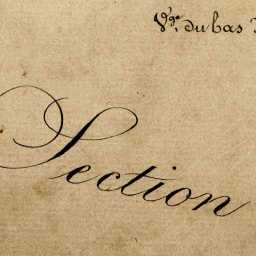 V.ge du bas
Section